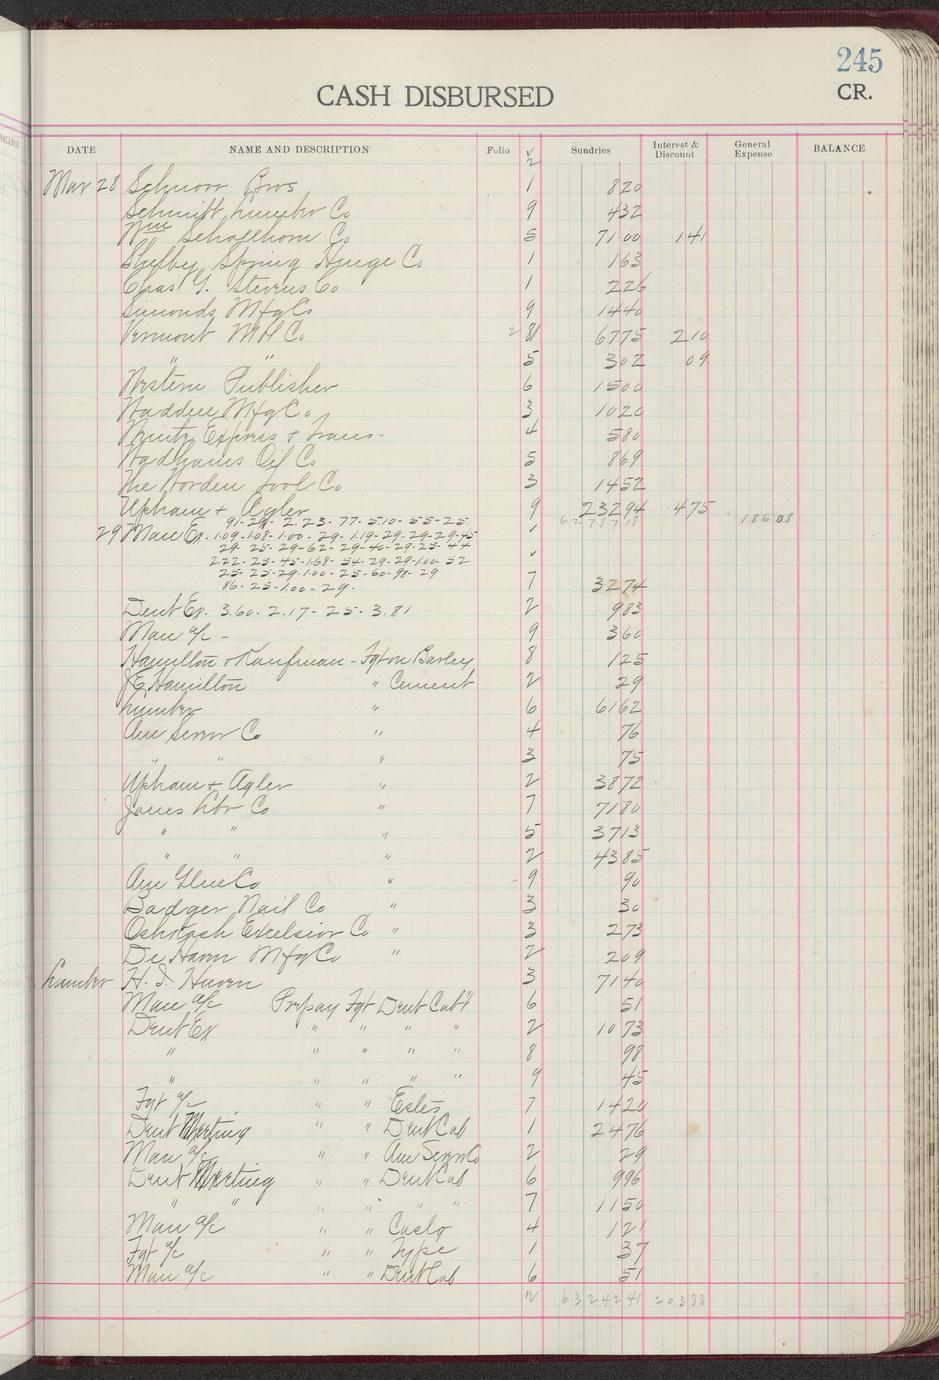 245
CASH DISBURSED
CR.
DATE NAME AND DESCRIPTION Folio √ Sundries Interest & Discount General Expense BALANCE
2
Mar 28 Schnorr Bros 1 820
Schmitt Lumber Co 9 432
Wm Schollhorn Co 5 7100 141
Shelby Spring Hinge Co 1 163
Chas G. Stevens Co 1 226
Simonds Mfg Co 9 1440
Vermont M H Co 2 81 6775 210
" " 5 302 09
Western Publisher 6 1500
Waddell Mfg Co 3 1020
Express & Trans- 4 580
Wadhams Oil Co 5 869
The Worden Tool Co 3 1452
Upham + Agler 9 23294 475
91-29- 2.23- 77- 510- 55-25 62 787 18 186 08
29 Man Ex- 1.09-1.08-1.00-29-1.19-29-29-29-45
29-25-29-62-29-40-29-25-44 √
2.22-25-45-1.68-54-29-29-1.00-52
25-25-29-1.00-25-60-98-29 7 3274
86-25-1.00-29-
Dent Ex. 3.60-2.17-25-3.81 2 983
Man a/c - 9 360
Hamilton & Kaufman - Fgt on Barley 8 125
J E Hamilton " Cement 2 29
Lumber " 6 6162
Am Screw Co " 4 76
" " " 3 75
Upham + Agler " 2 3872
Jones Lbr Co " 7 7180
" " " 5 3713
" " " 2 4385
Am Glue Co " 9 90
Badger Nail Co " 3 30
Oshkosh Excelsior Co " 3 273
De Haven Mfg Co " 2 209
Lumber H. I. Haven 3 7140
Man a/c Prepay Fgt Dent Cabt 6 51
Dent Ex " " " " 2 1073
" " " " " 8 98
" " " " " 9 45
Fgt a/c " " Estes 7 1420
Dent Meeting " " Dent Cab 1 2476
Man a/c " " Am Screw Co 2 29
Dent Meeting " " Dent Cab 6 996
" " " " " " 7 1150
Man a/c " " Caslo 4 121
Fgt a/c " " Type 1 37
Man a/c " " Dent Cab 6 51
2 63 242 41 203 83